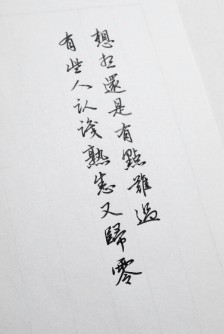 想想還是有點難過
有些人认識熟悉又歸零